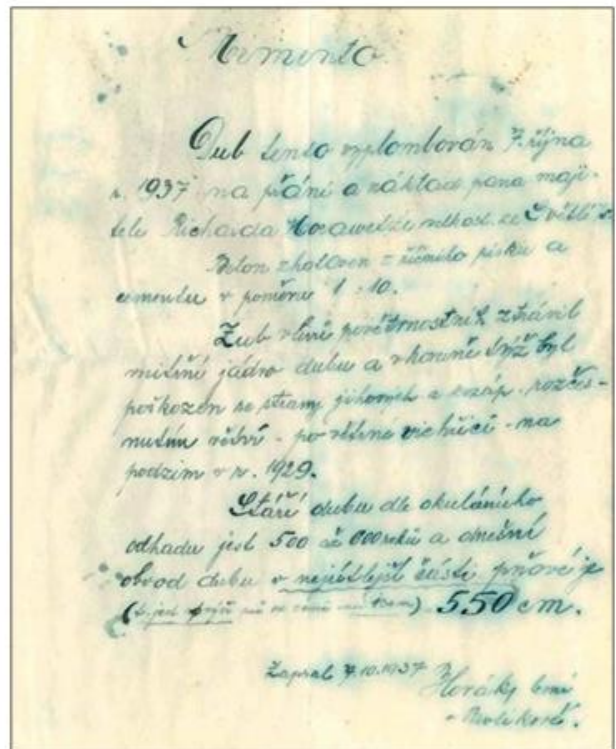 Memento
Dub tento vyplombován 7. října
r. 1937 na přání a náklad pana maji-
tele Richarda Morawetze velkost. ze Světlé
Beton zhotoven z říčního písku a
cementu v poměru 1:10.
Zub vlivů povětrnostních ztrávil
vnitřní jádro dubu a v koruně týž byl
poškozen se strany jihových. a sozáp. rozčes-
nutím větví - po větrné vichřici - na
podzim v r. 1929.
Stáří dubu dle okulárního
odhadu jest 500 až 600 roků a dnešní
obvod dubu v nejužší části pňové je
550 cm.
Zapsal 7.10.1937
Horáký